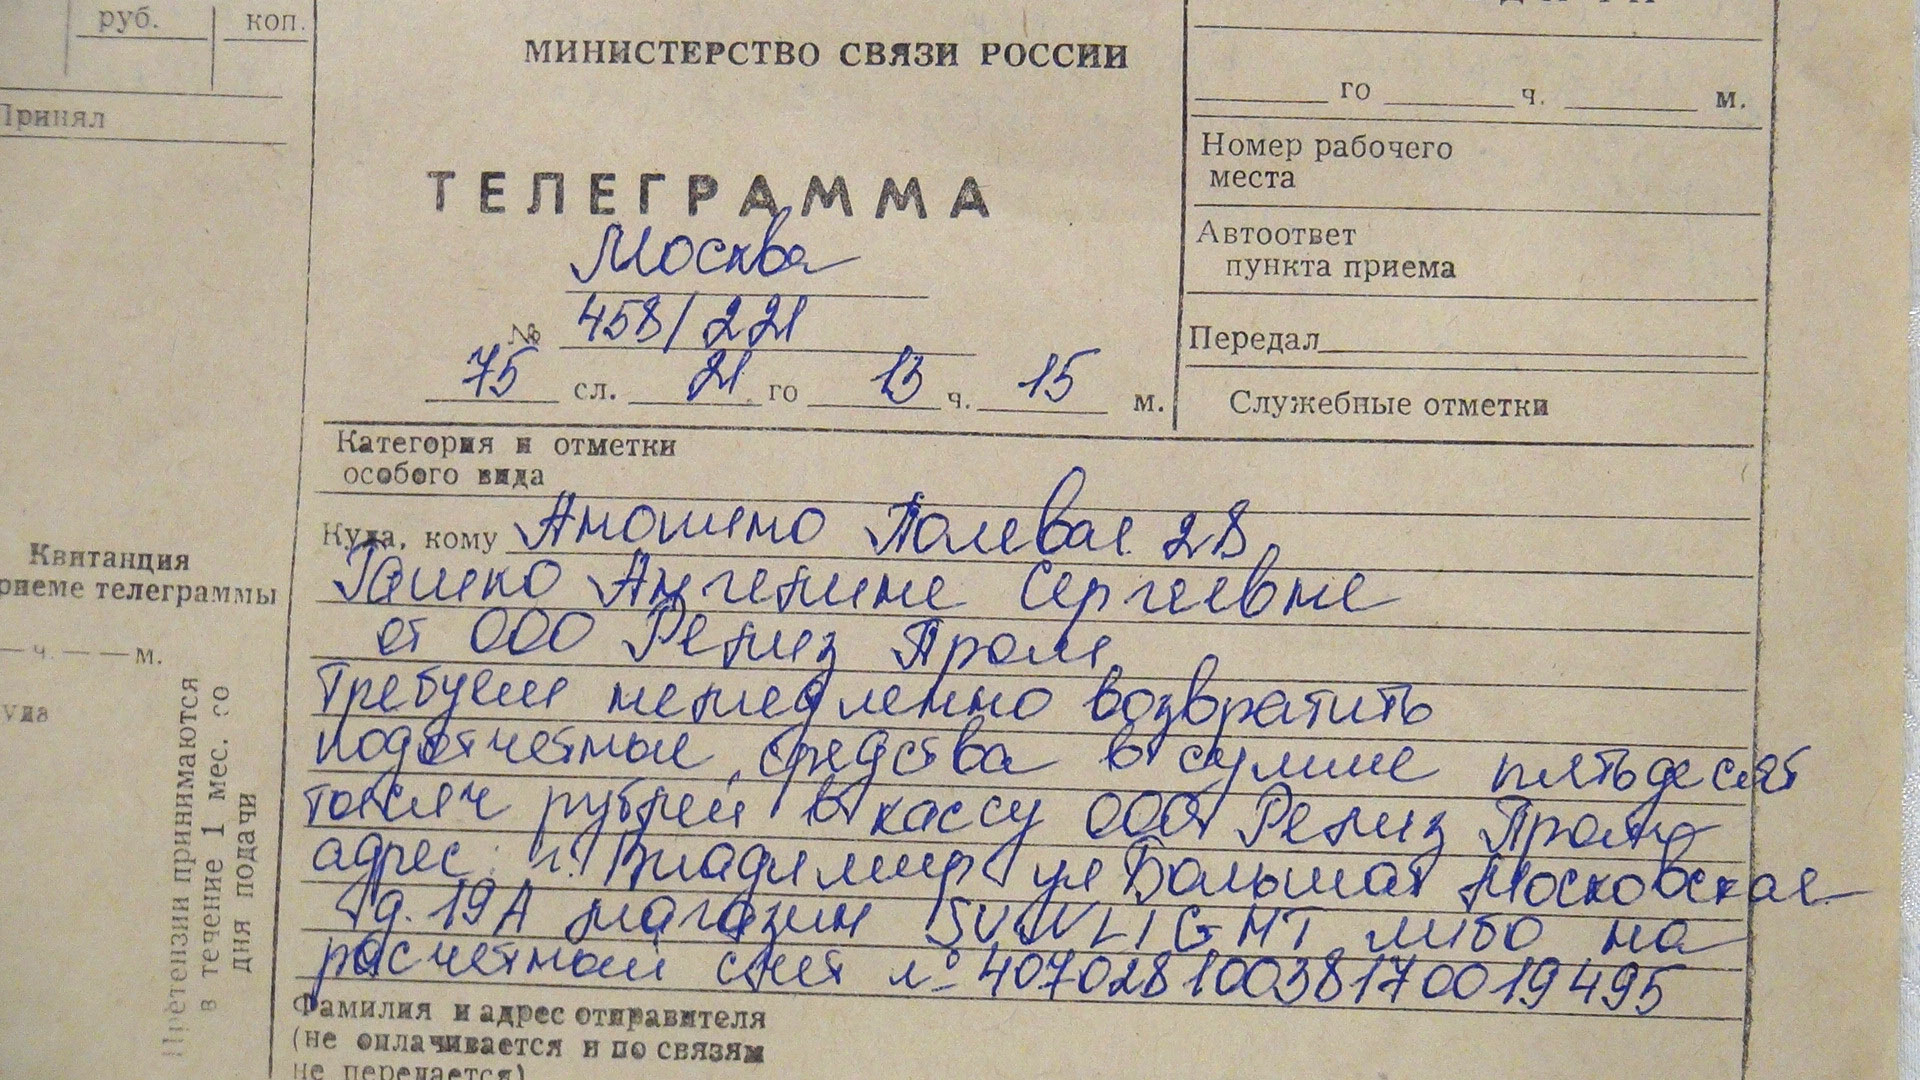 руб. коп.
Принял
МИНИСТЕРСТВО СВЯЗИ РОССИИ
го ч. м.
Номер рабочего
места
ТЕЛЕГРАММА
Автоответ
пункта приема
Москва
№ 458/221
Передал
75 сл. 21 го 13 ч. 15 м.
Служебные отметки
Категория и отметки
особого вида
Куда, кому Аношино Полевая 28,
Гашко Ангелине Сергеевне
от ООО Релиз Пром
требуем немедленно возвратить
подотчетные средства в сумме пятьдесят
тысяч рублей в кассу ООО Релиз Пром
адрес: г. Владимир ул Большая Московская
д. 19А магазин SUNLIGHT либо на
расчетный счет № 40702810038170019495
Фамилия и адрес отправителя
(не оплачивается и по связям
не передается)
Квитанция
риеме телеграммы
ч. м.
уда
Претензии принимаются
в течение 1 мес. со
дня подачи